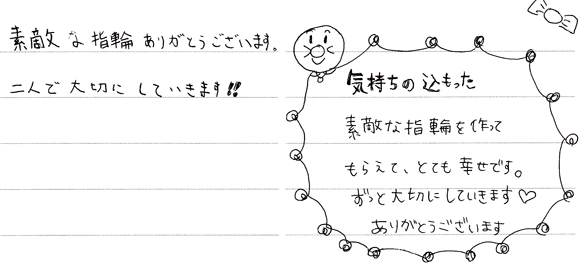 素敵な指輪ありがとうございます。
二人で大切にしていきます!!
気持ちの込もった
素敵な指輪を作って
もらえて、とても幸せです。
ずっと大切にしていきます♡
ありがとうございます